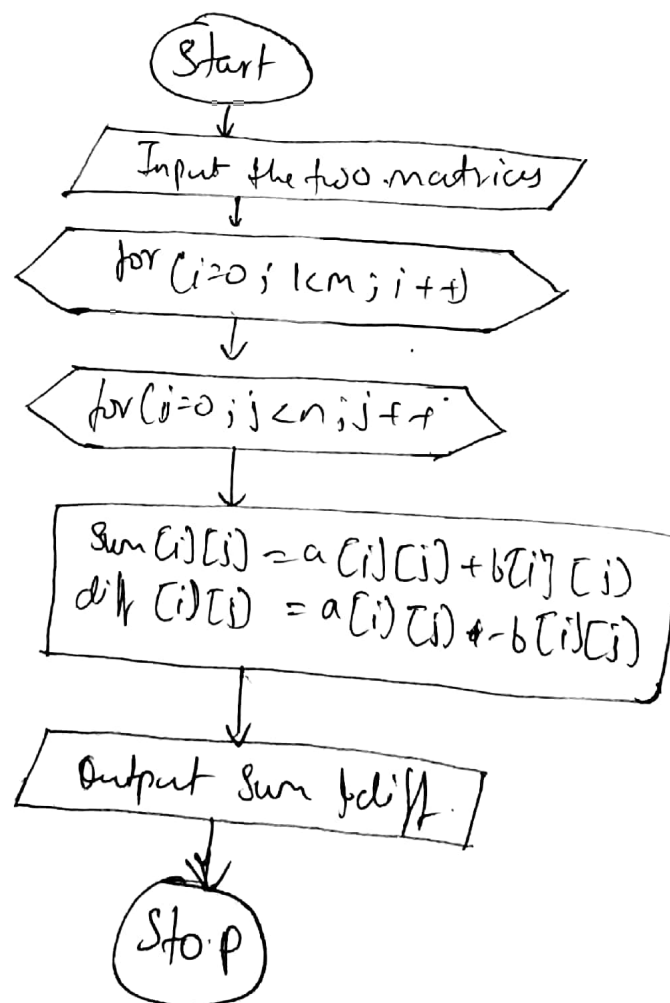 Start
Input the two matrices
for (i=0; i<m; i++)
for (j=0; j<n; j++
Sum [i][j] = a[i][j] + b[i][j]
diff [i][j] = a[i][j] - b[i][j]
Output Sum & diff.
Stop